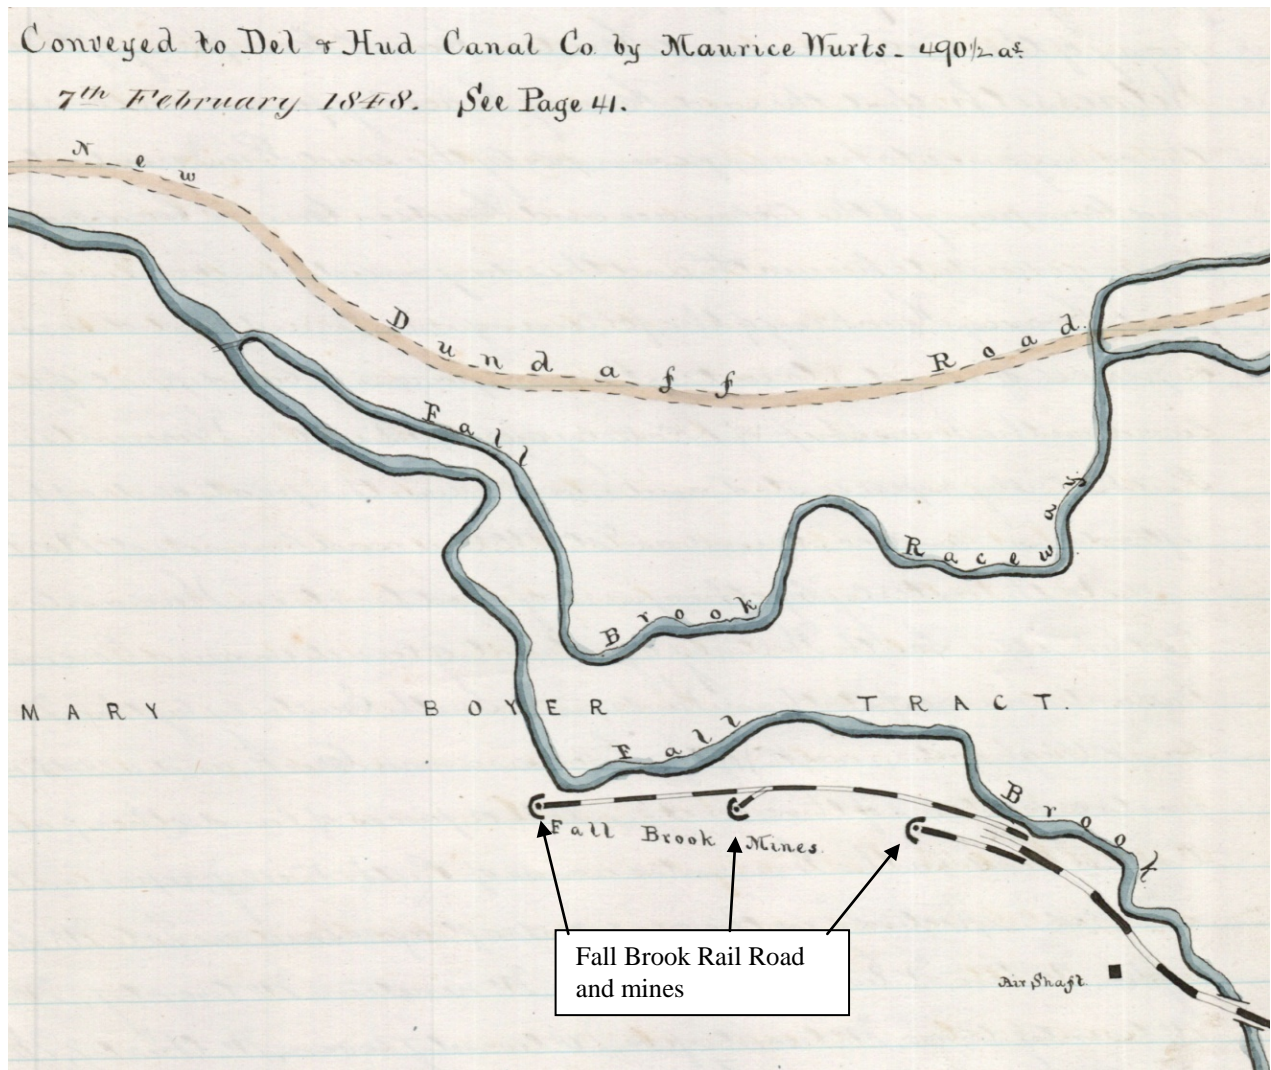 Conveyed to Del & Hud Canal Co. by Maurice Wurts - 490 1/2 as.
7th February 1848. See Page 41.
New Dundaff Road.
Fall Brook Raceway
MARY BOYER TRACT.
Fall Brook
Fall Brook Mines.
Air Shaft.
Fall Brook Rail Road
and mines